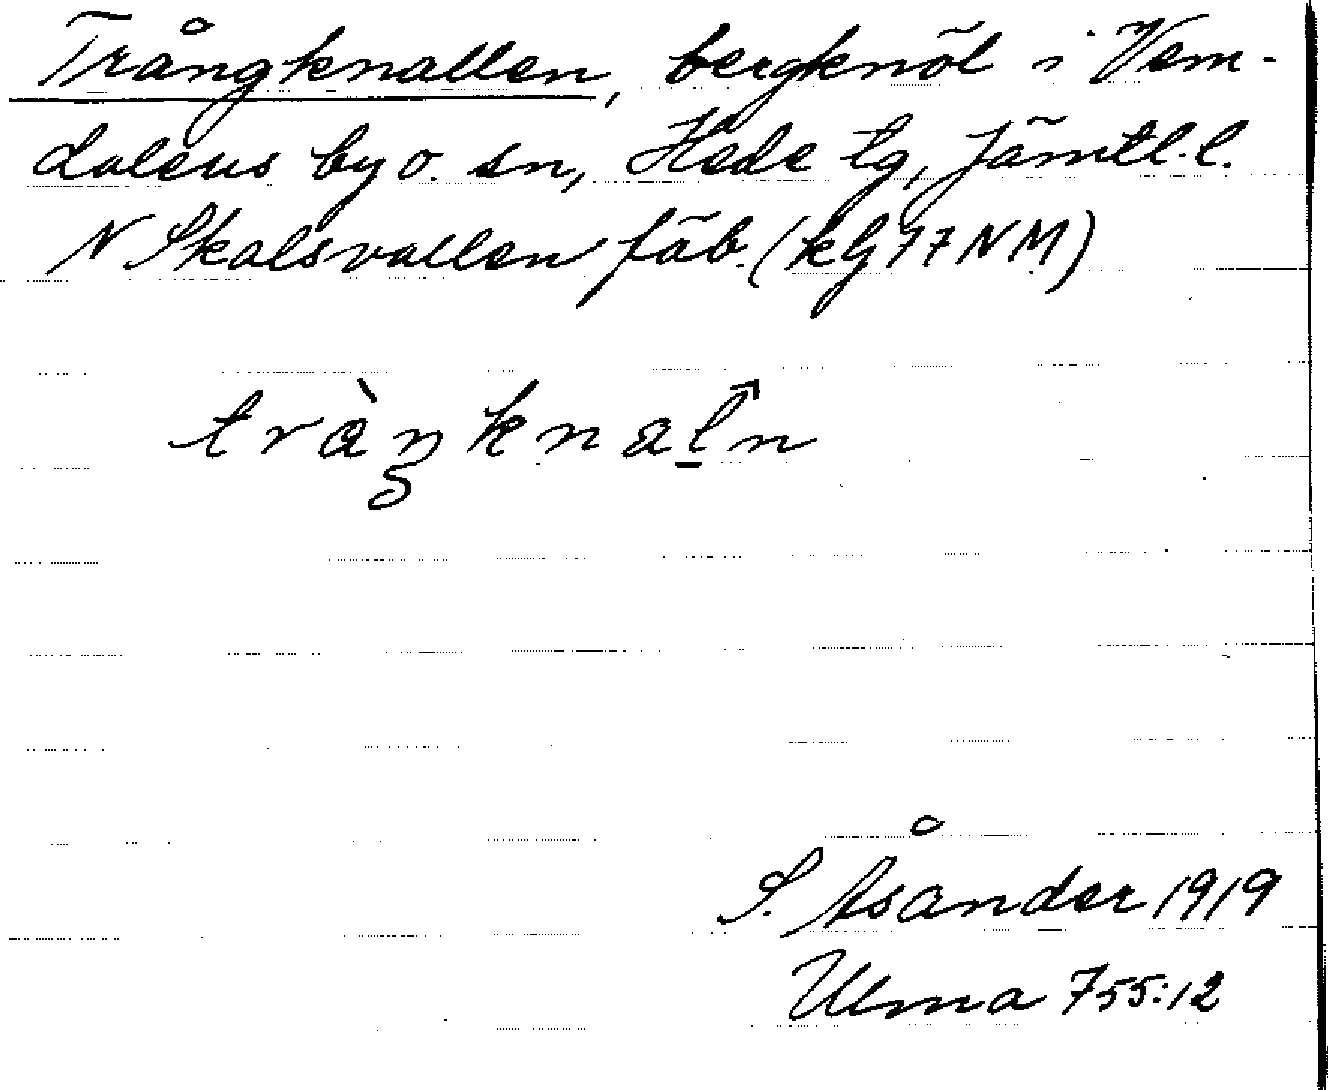 Trångknallen, bergknöl i Vem-
dalens by o. sn, Hede tg, Jämtl. l.
N Skalsvallen fäb. (kg 17 NM)
tràŋknal̂n
S. Åsånder 1919
Ulma 755:12